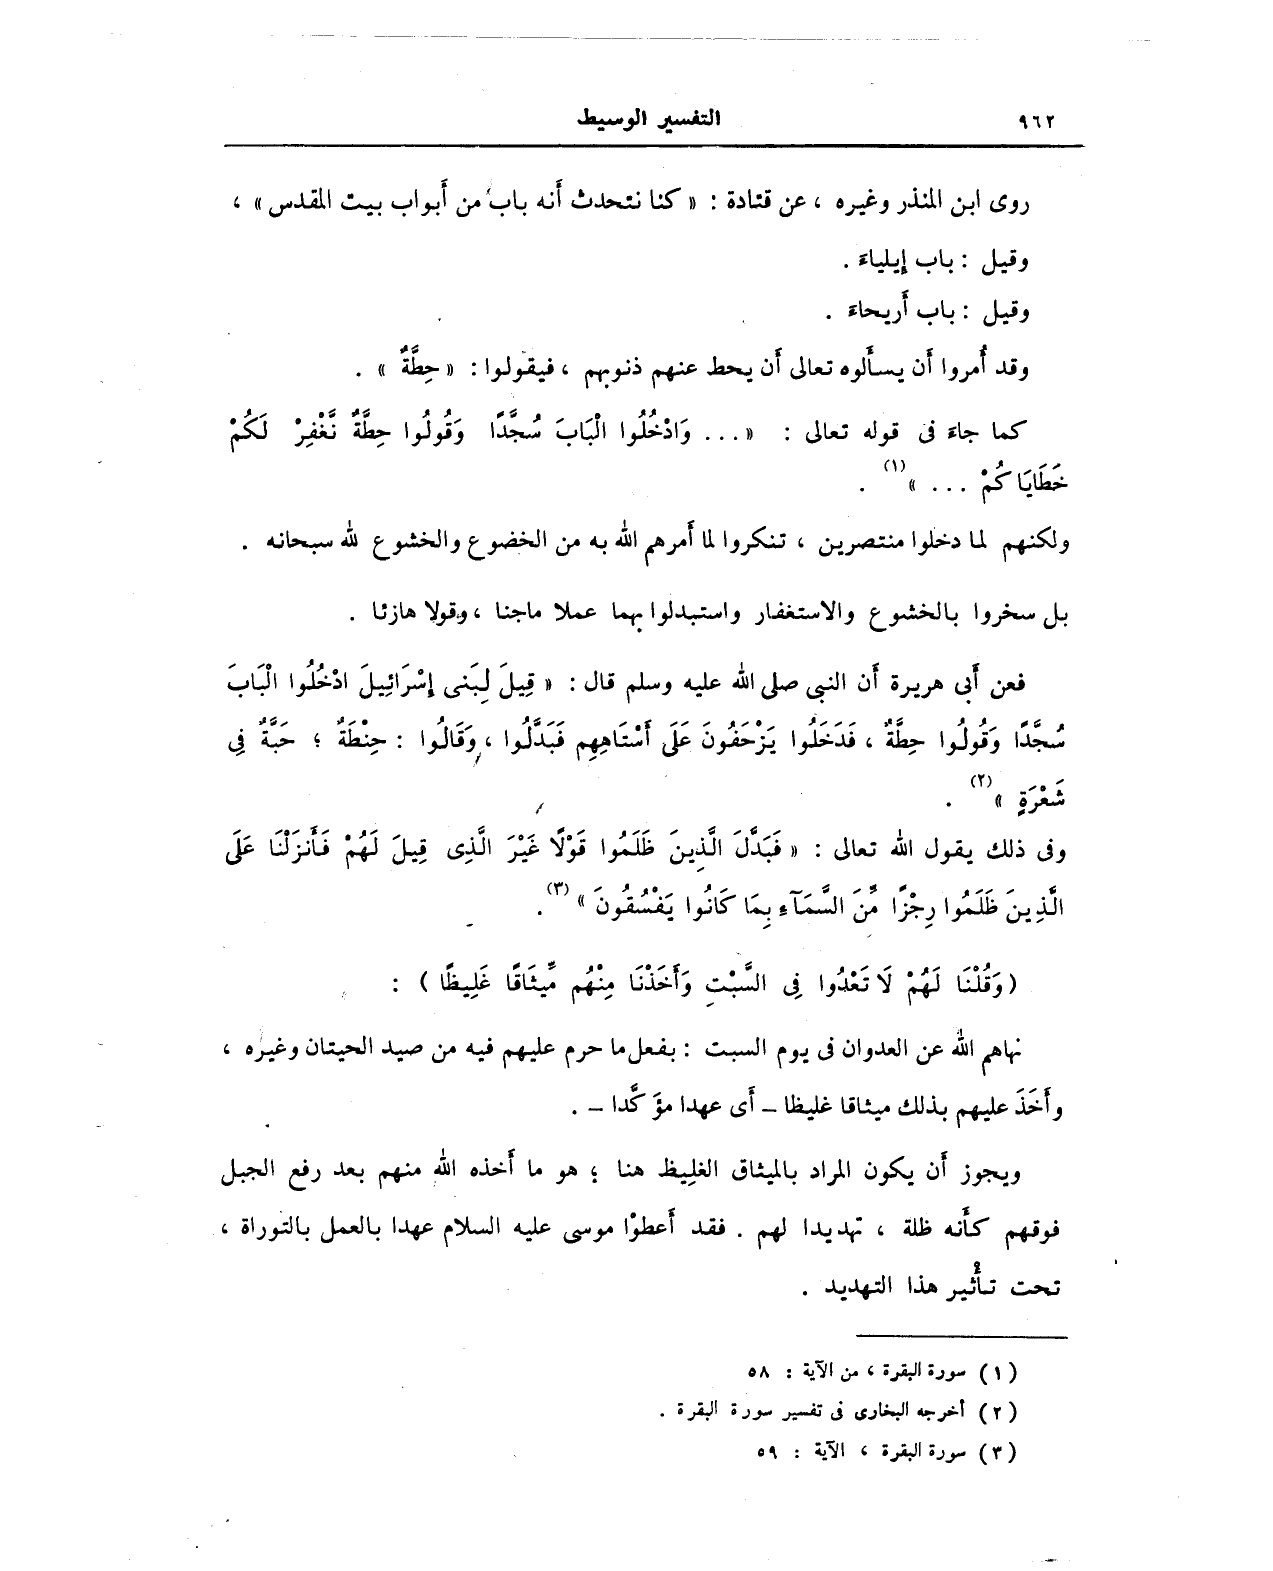 ٩٦٢ التفسير الوسيط
روى ابن المنذر وغيره ، عن قتادة : « كنا نتحدث أنه باب من أبواب بيت المقدس » ،
وقيل : باب إيلياءَ .
وقيل : باب أريحاءَ .
وقد أُمروا أن يسألوه تعالى أن يحط عنهم ذنوبهم ، فيقولوا : « حِطَّةٌ » .
كما جاءَ فى قوله تعالى : « ... وَادْخُلُوا الْبَابَ سُجَّدًا وَقُولُوا حِطَّةٌ نَّغْفِرْ لَكُمْ
خَطَايَاكُمْ ... »(١) .
ولكنهم لما دخلوا منتصرين ، تنكروا لما أمرهم الله به من الخضوع والخشوع لله سبحانه .
بل سخروا بالخشوع والاستغفار واستبدلوا بهما عملا ماجنا ، وقولا هازئا .
فعن أبى هريرة أن النبى صلى الله عليه وسلم قال : « قِيلَ لِبَنى إِسْرَائِيلَ ادْخُلُوا الْبَابَ
سُجَّدًا وَقُولُوا حِطَّةٌ ، فَدَخَلُوا يَزْحَفُونَ عَلَى أَسْتَاهِهِم فَبَدَّلُوا ، وَقَالُوا : حِنْطَةٌ ؛ حَبَّةٌ فِى
شَعْرَةٍ »(٢) .
وفى ذلك يقول الله تعالى : « فَبَدَّلَ الَّذِينَ ظَلَمُوا قَوْلًا غَيْرَ الَّذِى قِيلَ لَهُمْ فَأَنزَلْنَا عَلَى
الَّذِينَ ظَلَمُوا رِجْزًا مِّنَ السَّمَآءِ بِمَا كَانُوا يَفْسُقُونَ »(٣).
( وَقُلْنَا لَهُمْ لَا تَعْدُوا فِى السَّبْتِ وَأَخَذْنَا مِنْهُم مِّيثَاقًا غَلِيظًا ) :
نهاهم الله عن العدوان فى يوم السبت : بفعل ما حرم عليهم فيه من صيد الحيتان وغيره ،
وأَخَذَ عليهم بذلك ميثاقا غليظا – أى عهدا مؤكَّدا – .
ويجوز أن يكون المراد بالميثاق الغليظ هنا ؛ هو ما أخذه الله منهم بعد رفع الجبل
فوقهم كأنه ظلة ، تهديدا لهم . فقد أعطوْا موسى عليه السلام عهدا بالعمل بالتوراة ،
تحت تأثير هذا التهديد .
(١) سورة البقرة ، من الآية : ٥٨
(٢) أخرجه البخارى فى تفسير سورة البقرة .
(٣) سورة البقرة ، الآية : ٥٩